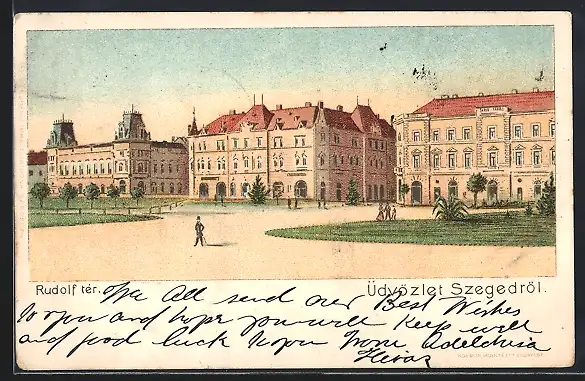 Rudolf tér. Üdvözlet Szegedről.
We All send our Best Wishes
to you and hope you will Keep well
and good luck to you from Adelchisa